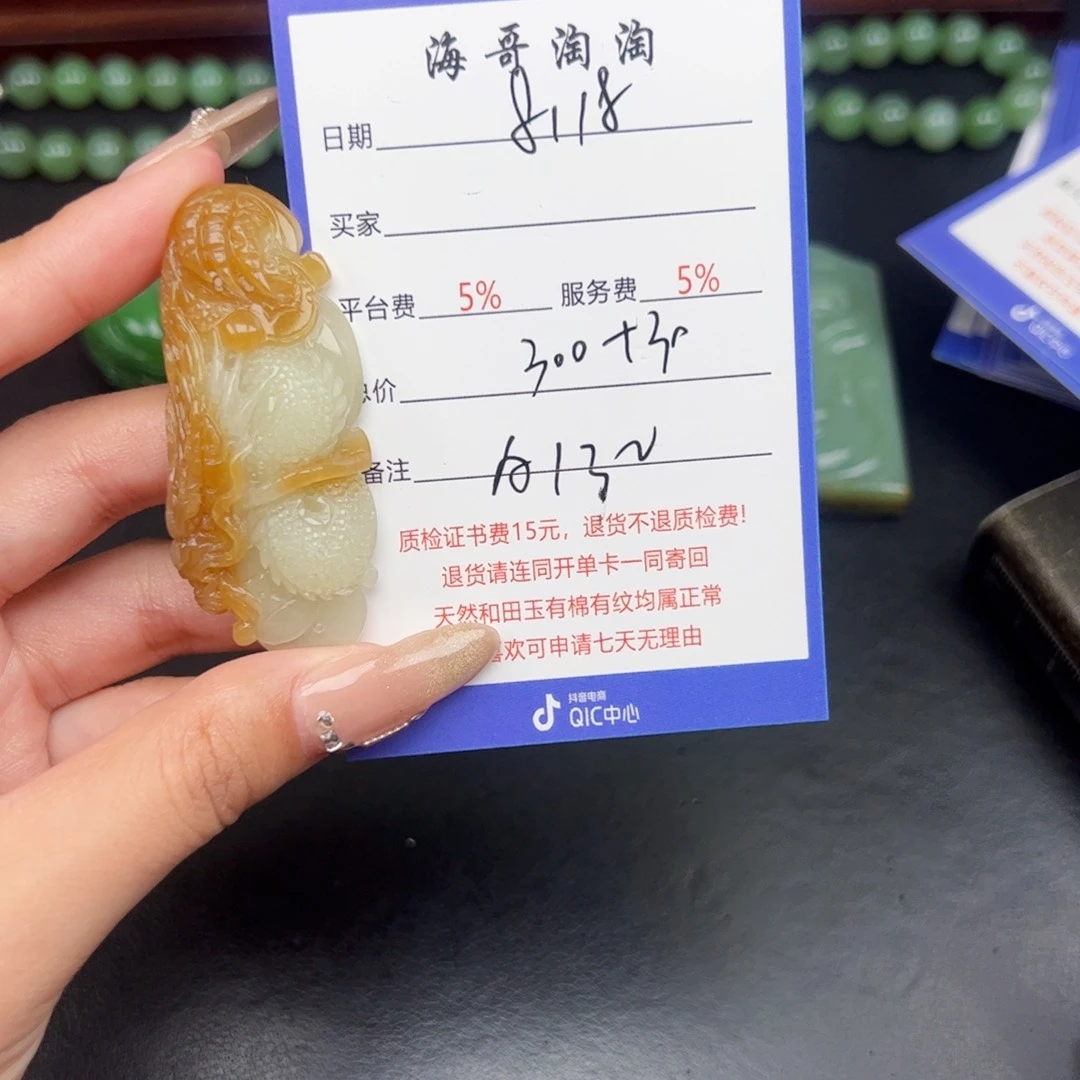 海哥淘淘
日期 8118
买家
平台费 5% 服务费 5%
总价 300+30
备注
质检证书费15元，退货不退质检费！
退货请连同开单卡一同寄回
天然和田玉有棉有纹均属正常
喜欢可申请七天无理由
抖音电商
QIC中心